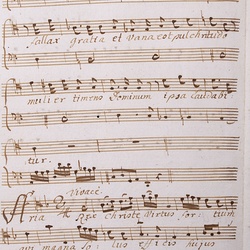 fallax gratia et vana est pulchritudo
mulier timens Dominum ipsa laudabi
tur.
Vivace
Aria Rex Christe virtus fortium
qui magna so lus efficis hujus